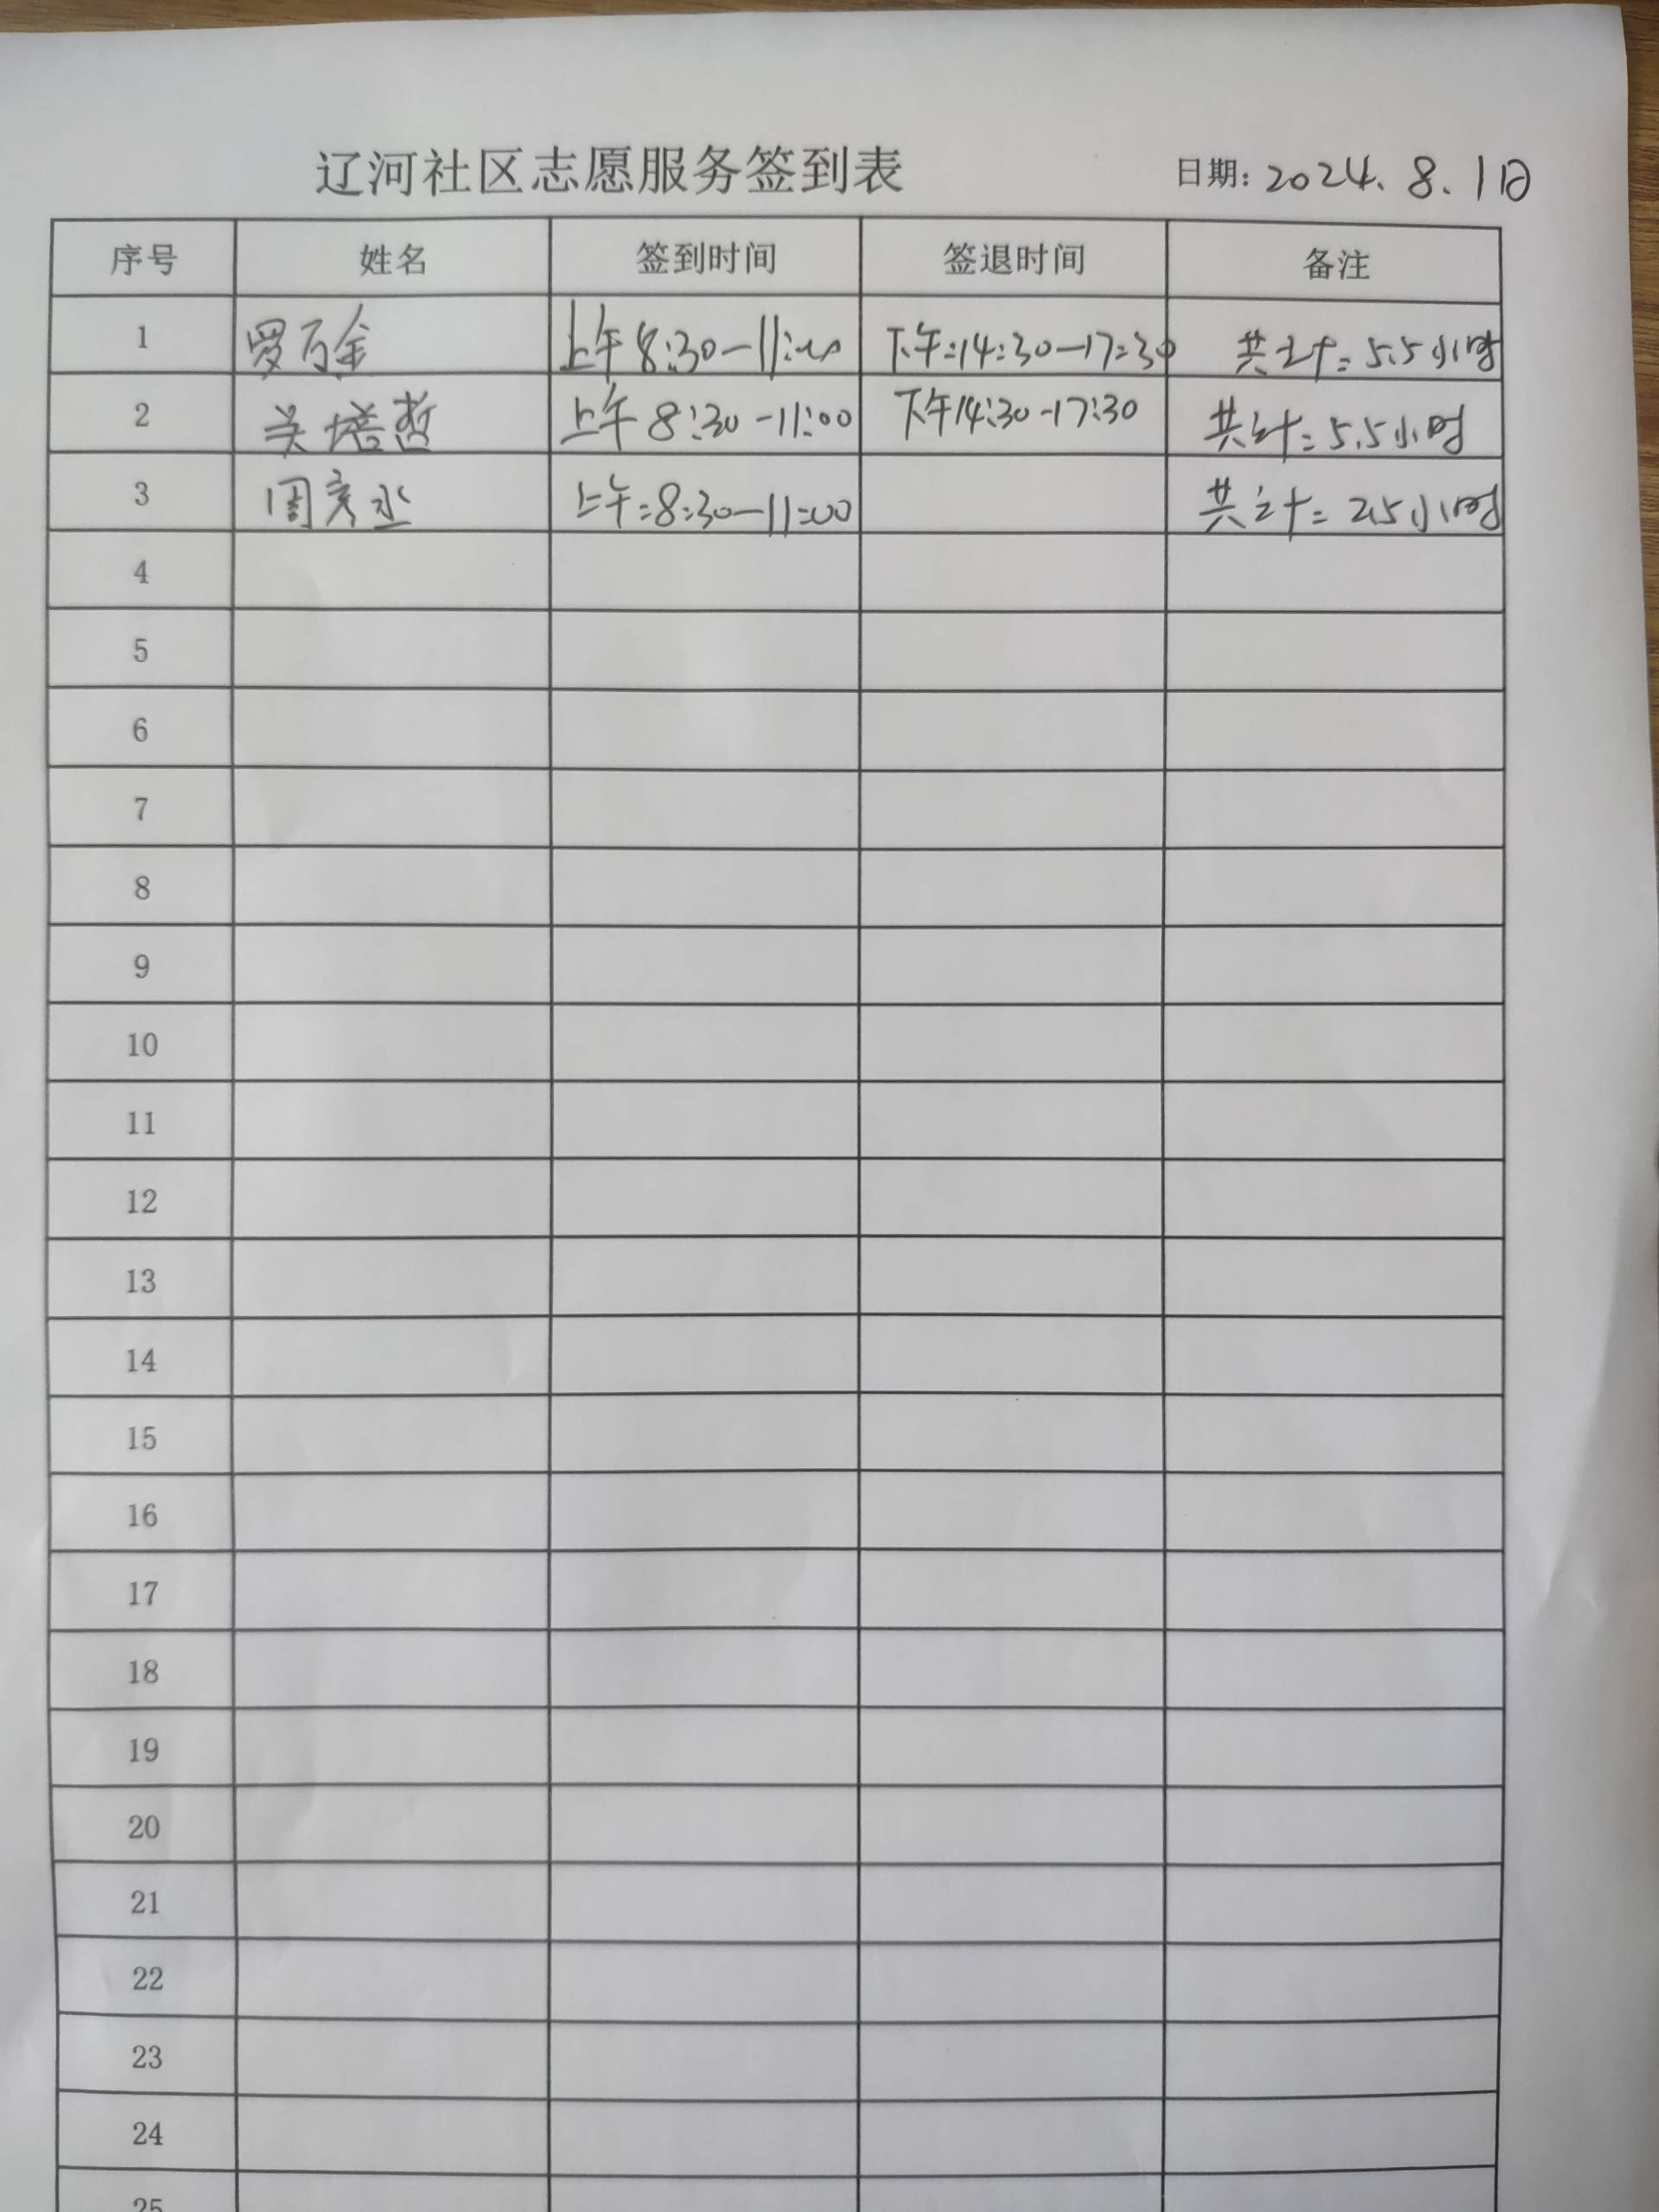 辽河社区志愿服务签到表 日期: 2024. 8. 1日
序号 姓名 签到时间 签退时间 备注
1 罗万金 上午8:30-11:00 下午:14:30-17:30 共计:5.5小时
2 吴塔哲 上午8:30-11:00 下午14:30-17:30 共计:5.5小时
3 周彦丞 上午:8:30-11:00 共计:2.5小时
4
5
6
7
8
9
10
11
12
13
14
15
16
17
18
19
20
21
22
23
24
25